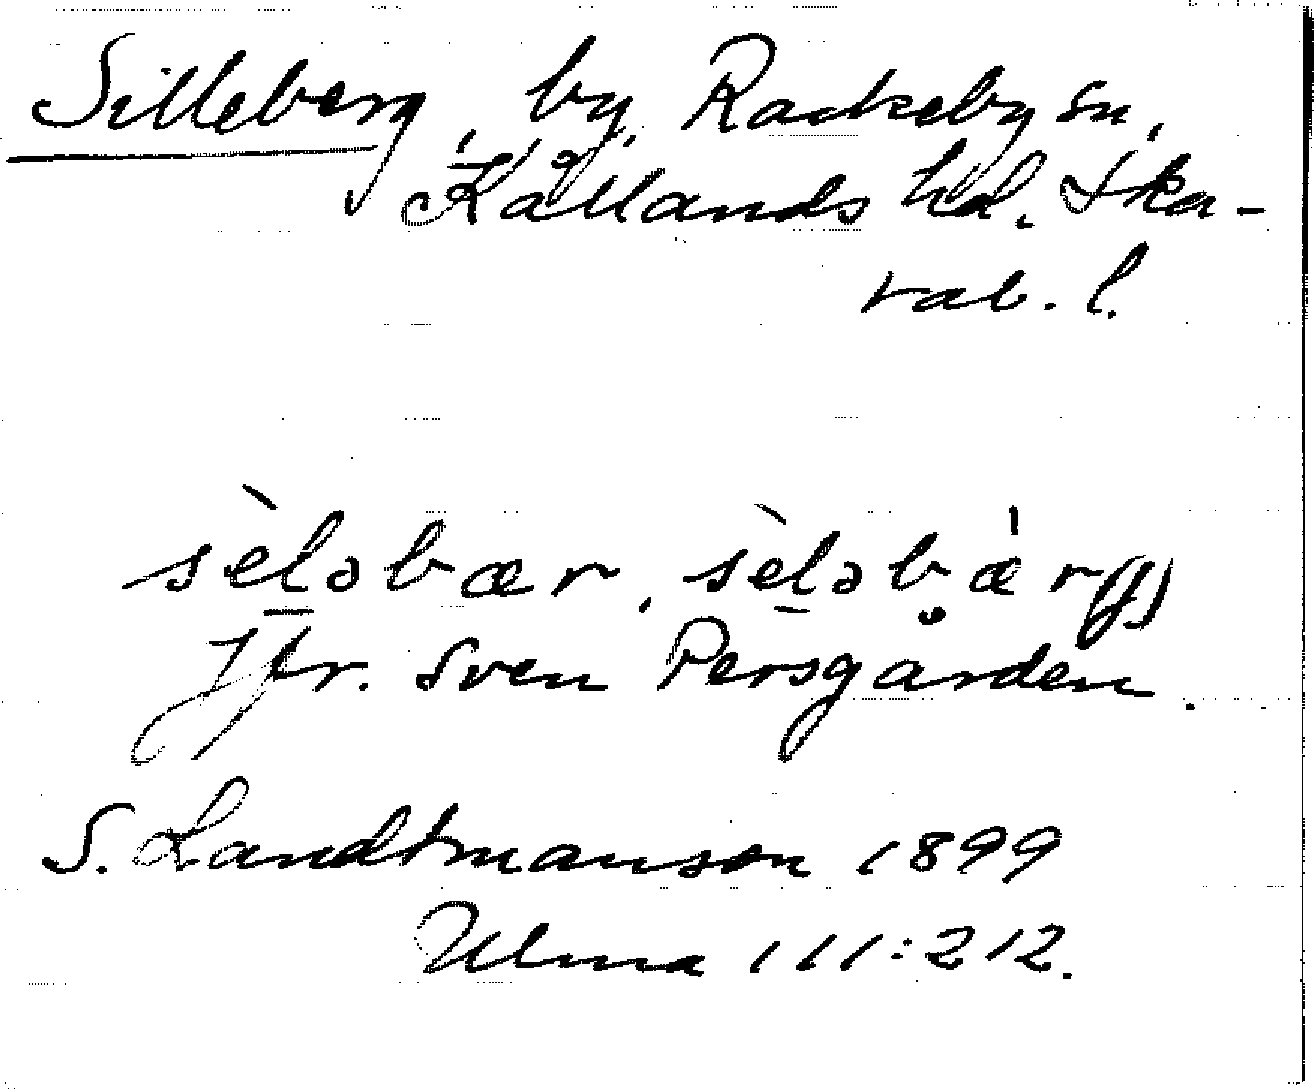 Silleberg, by, Rackeby sn,
Kållands hd. Ska-
rab. l.
sèləbær, sèləbær(j)
Jfr. Sven Persgården.
S. Landtmanson 1899
Ulma 111:212.